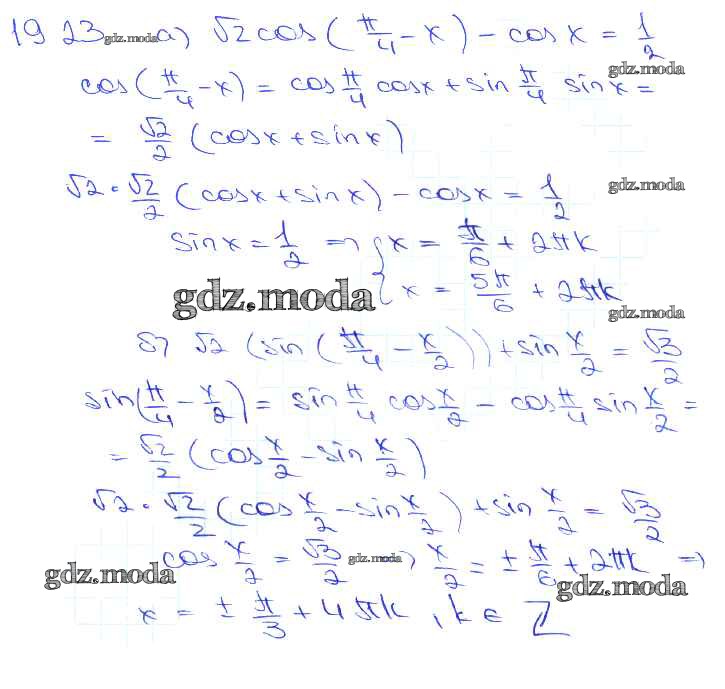 19 23 gdz.moda а) √2 cos(π/4 - x) - cos x = 1/2
gdz.moda
cos(π/4 - x) = cos π/4 cos x + sin π/4 sin x =
= √2/2 (cos x + sin x)
√2 · √2/2 (cos x + sin x) - cos x = 1/2 gdz.moda
sin x = 1/2 => { x = π/6 + 2πk
gdz.moda x = 5π/6 + 2πk
gdz.moda
б) √2 (sin(π/4 - x/2)) + sin x/2 = √3/2
sin(π/4 - x/2) = sin π/4 cos x/2 - cos π/4 sin x/2 =
= √2/2 (cos x/2 - sin x/2)
√2 · √2/2 (cos x/2 - sin x/2) + sin x/2 = √3/2
cos x/2 = √3/2 gdz.moda x/2 = ± π/6 + 2πk =>
gdz.moda gdz.moda
x = ± π/3 + 4πk, k ∈ Z